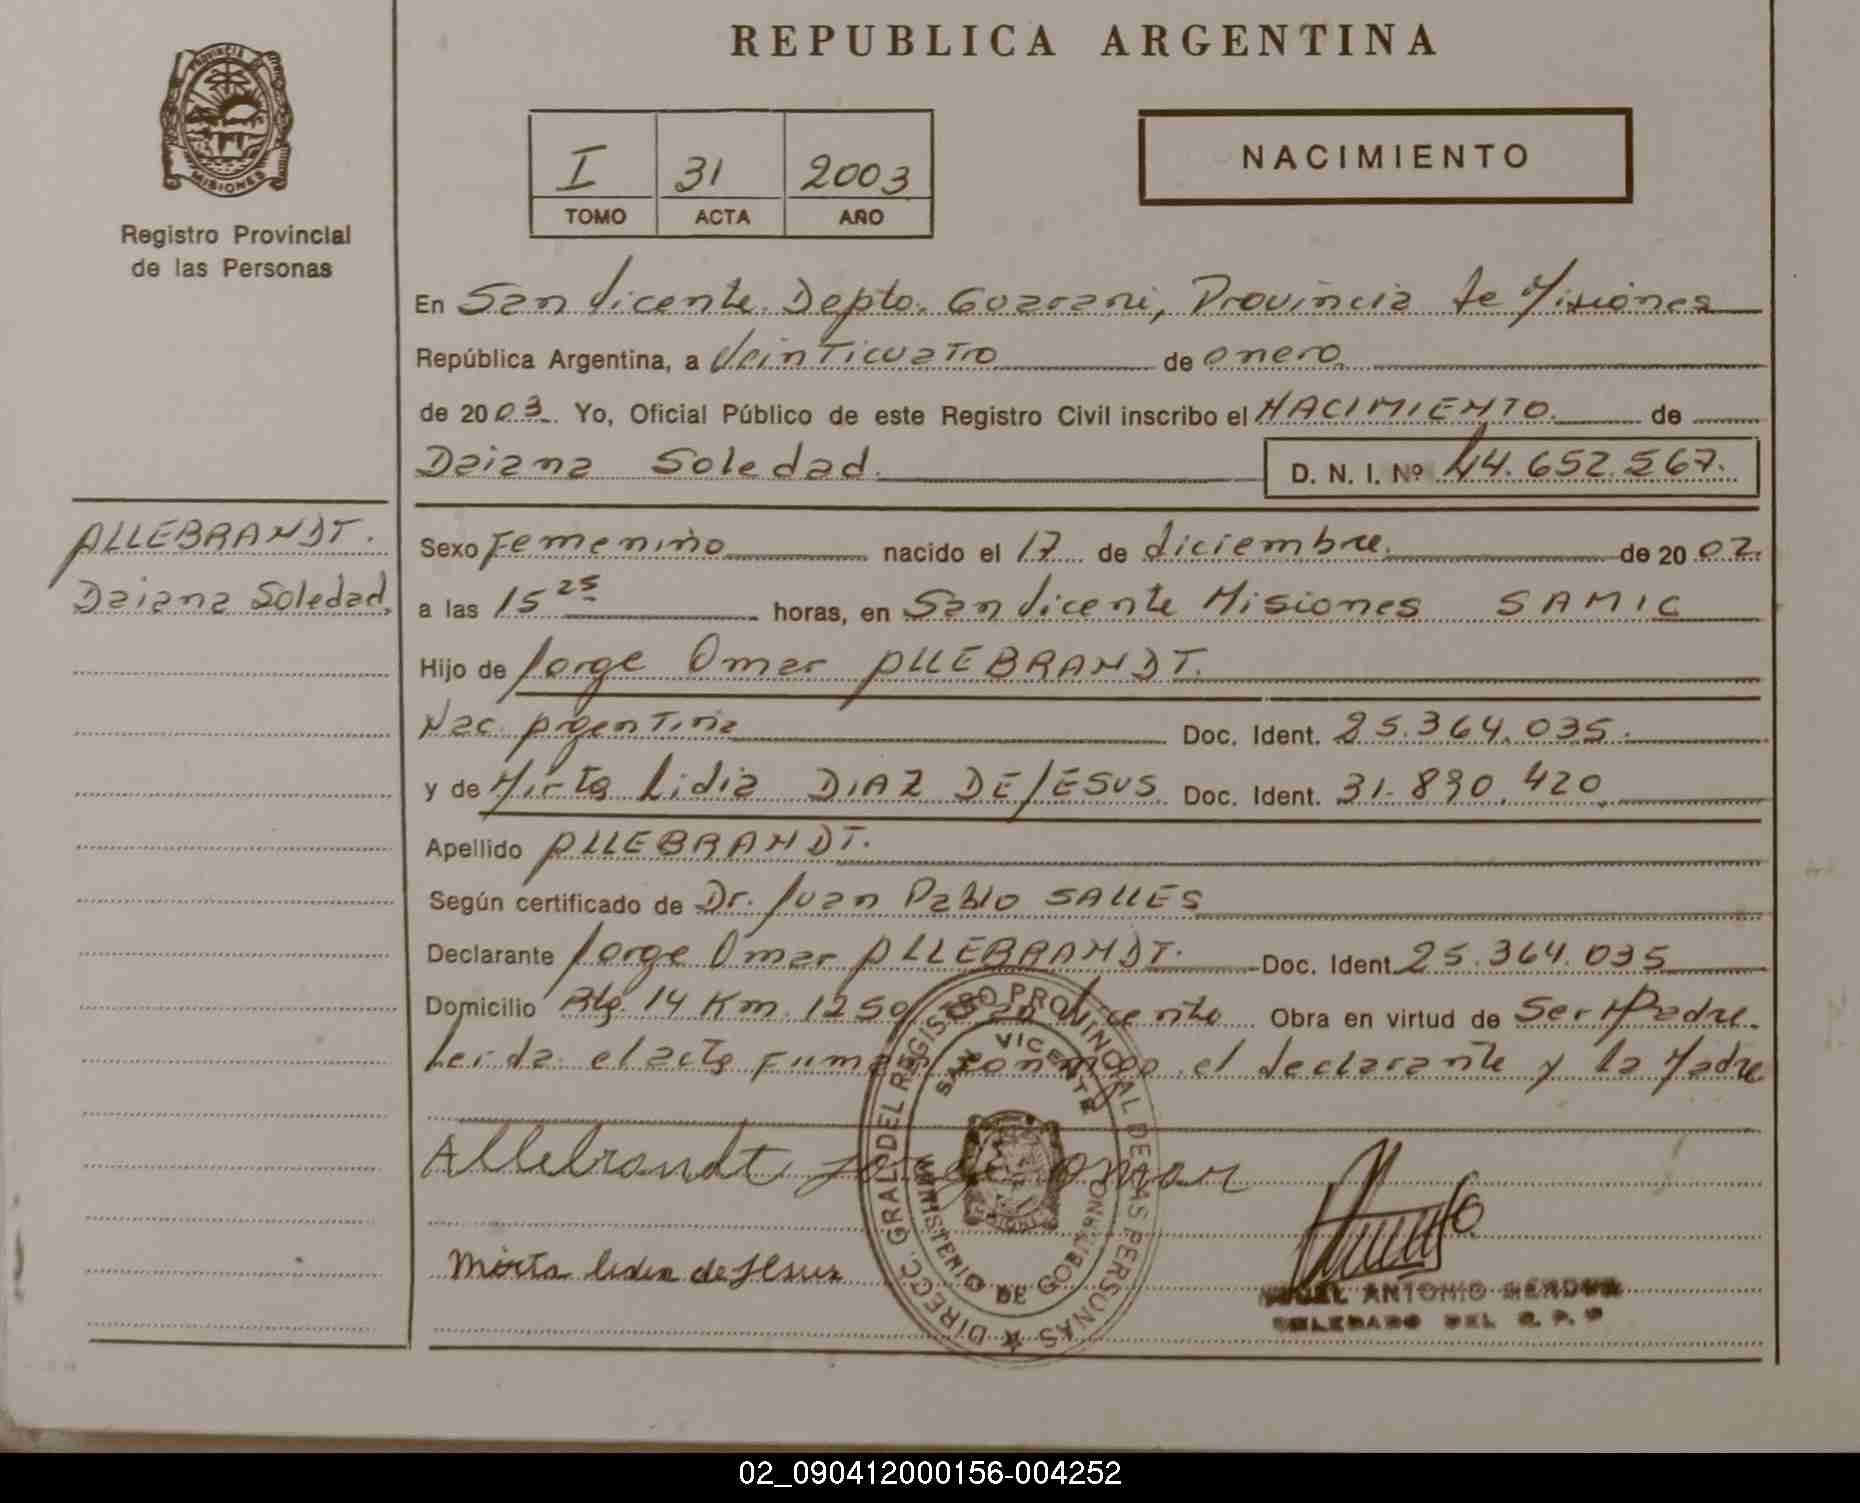 REPUBLICA ARGENTINA
PROVINCIA DE
MISIONES
Registro Provincial
de las Personas
I 31 2003
TOMO ACTA AÑO
NACIMIENTO
En San Vicente. Depto. Guarani, Provincia de Misiones
República Argentina, a Veinticuatro de enero
de 2003. Yo, Oficial Público de este Registro Civil inscribo el NACIMIENTO. de
Daiana Soledad. D. N. I. Nº 44.652.567.
ALLEBRANDT.
Daiana Soledad.
Sexo Femenino nacido el 17 de diciembre. de 2002.
a las 15 25 horas, en San Vicente Misiones SAMIC
Hijo de Jorge Omar ALLEBRANDT.
Nac. Argentina Doc. Ident. 25.364.035.
y de Mirta Lidia DIAZ DE JESUS Doc. Ident. 31.890.420
Apellido ALLEBRANDT.
Según certificado de Dr. Juan Pablo SALLES
Declarante Jorge Omar ALLEBRANDT. Doc. Ident. 25.364.035
Domicilio Rta. 14 Km. 1250 San Vicente Obra en virtud de Ser Padre.
Leida el acta Firman conmigo el declarante y la Madre
Allebrandt Jorge omar
Mirta lidia de Jesus
DIRECC. GRAL. DEL REGISTRO PROVINCIAL DE LAS PERSONAS
SAN VICENTE
MINISTERIO DE GOBIERNO
ANTONIO
DEL R. P. P
02_090412000156-004252